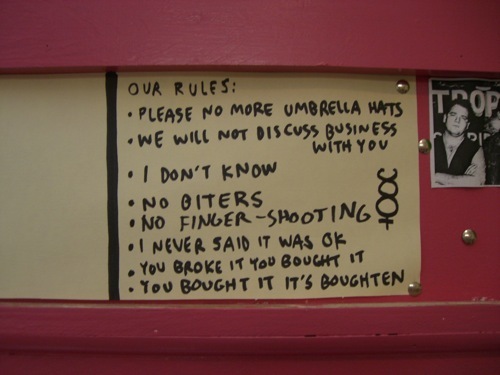 OUR RULES:
• PLEASE NO MORE UMBRELLA HATS
• WE WILL NOT DISCUSS BUSINESS
WITH YOU
• I DON'T KNOW
• NO BITERS
• NO FINGER-SHOOTING
• I NEVER SAID IT WAS OK
• YOU BROKE IT YOU BOUGHT IT
• YOU BOUGHT IT IT'S BOUGHTEN
TROP